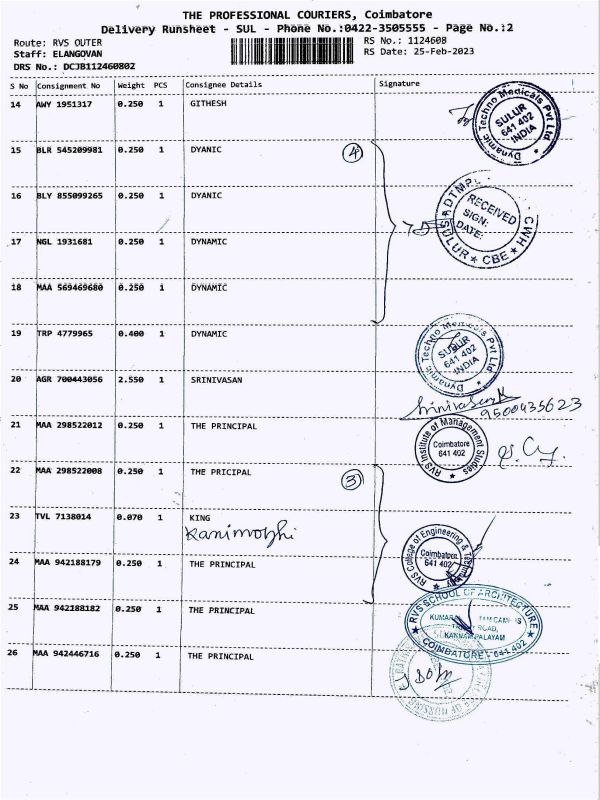 THE PROFESSIONAL COURIERS, Coimbatore
Delivery Runsheet - SUL - Phone No.:0422-3505555 - Page No.:2
Route: RVS OUTER
Staff: ELANGOVAN
DRS No.: DCJB112460802
RS No.: 1124608
RS Date: 25-Feb-2023
S No Consignment No Weight PCS Consignee Details Signature
14 AWY 1951317 0.250 1 GITHESH
Dynamic Techno Medicals Pvt Ltd
SULUR
641 402
INDIA
15 BLR 545209981 0.250 1 DYANIC 4
16 BLY 855099265 0.250 1 DYANIC
RECEIVED
SIGN:
DATE:
SULUR ★ CBE ★
17 NGL 1931681 0.250 1 DYNAMIC
18 MAA 569469680 0.250 1 DYNAMIC
19 TRP 4779965 0.400 1 DYNAMIC
Dynamic Techno Medicals Pvt Ltd
SULUR
641 402
INDIA
20 AGR 700443056 2.550 1 SRINIVASAN
9500435623
21 MAA 298522012 0.250 1 THE PRINCIPAL
RVS Institute of Management Studies
Coimbatore
641 402
22 MAA 298522008 0.250 1 THE PRICIPAL 3
23 TVL 7138014 0.070 1 KING
Kanimozhi
RVS College of Engineering &
Coimbatore
641 402
24 MAA 942188179 0.250 1 THE PRINCIPAL
25 MAA 942188182 0.250 1 THE PRINCIPAL
RVS SCHOOL OF ARCHITECTURE
ROAD,
KANNAMPALAYAM
COIMBATORE - 641 402
26 MAA 942446716 0.250 1 THE PRINCIPAL
OF NURSING